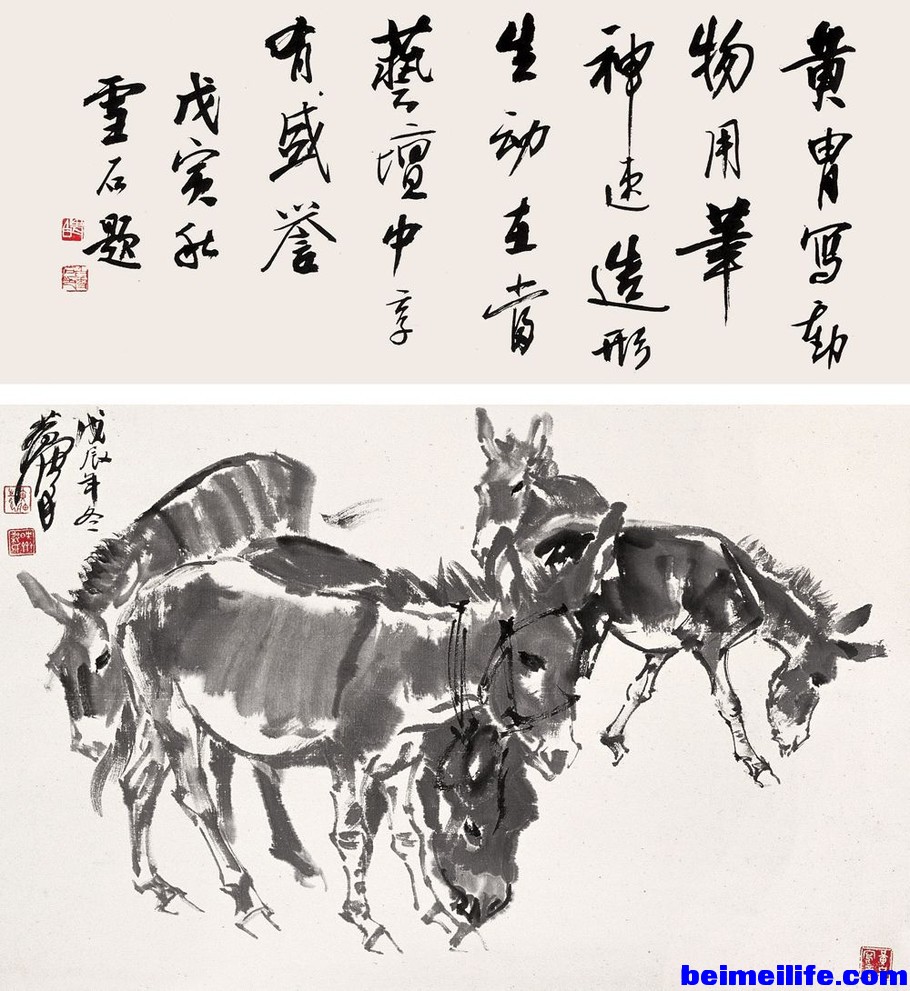 黄胄写動
物用筆
神速造形
生动在當
藝壇中享
有盛誉
戊寅秋
雪石题
戊辰年冬
黄胄
beimeilife.com